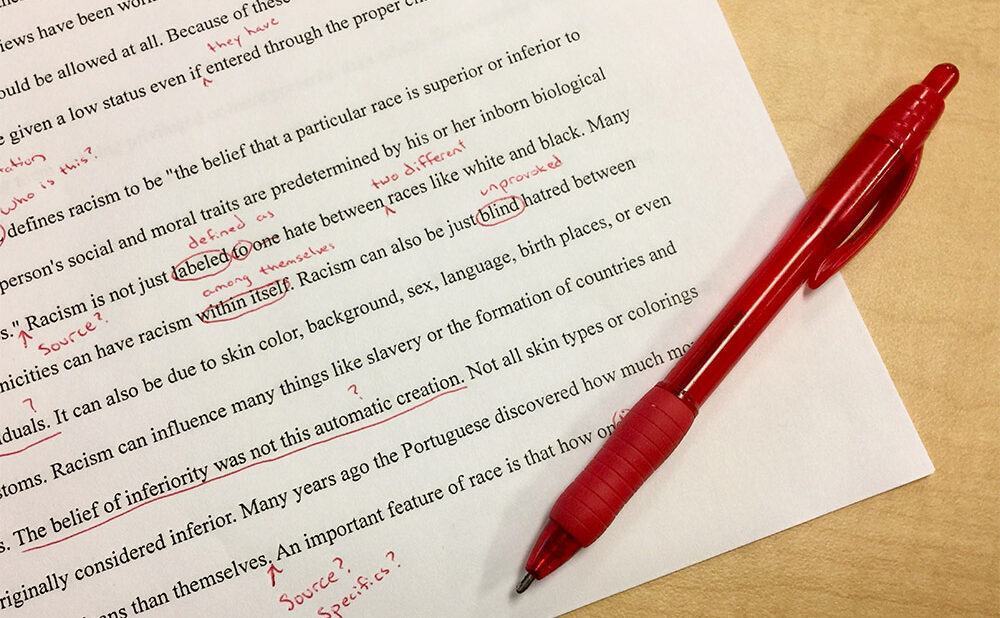 iews have been wor
ould be allowed at all. Because of these
they have
e given a low status even if entered through the proper ch
tation
who is this?
defines racism to be "the belief that a particular race is superior or inferior to
two different
person's social and moral traits are predetermined by his or her inborn biological
defined as
unprovoked
s." Racism is not just labeled to one hate between races like white and black. Many
Source?
among themselves
nicities can have racism within itself. Racism can also be just blind hatred between
?
iduals. It can also be due to skin color, background, sex, language, birth places, or even
stoms. Racism can influence many things like slavery or the formation of countries and
?
s. The belief of inferiority was not this automatic creation. Not all skin types or colorings
riginally considered inferior. Many years ago the Portuguese discovered how much mo
ans than themselves. An important feature of race is that how on
Source?
Specifics?